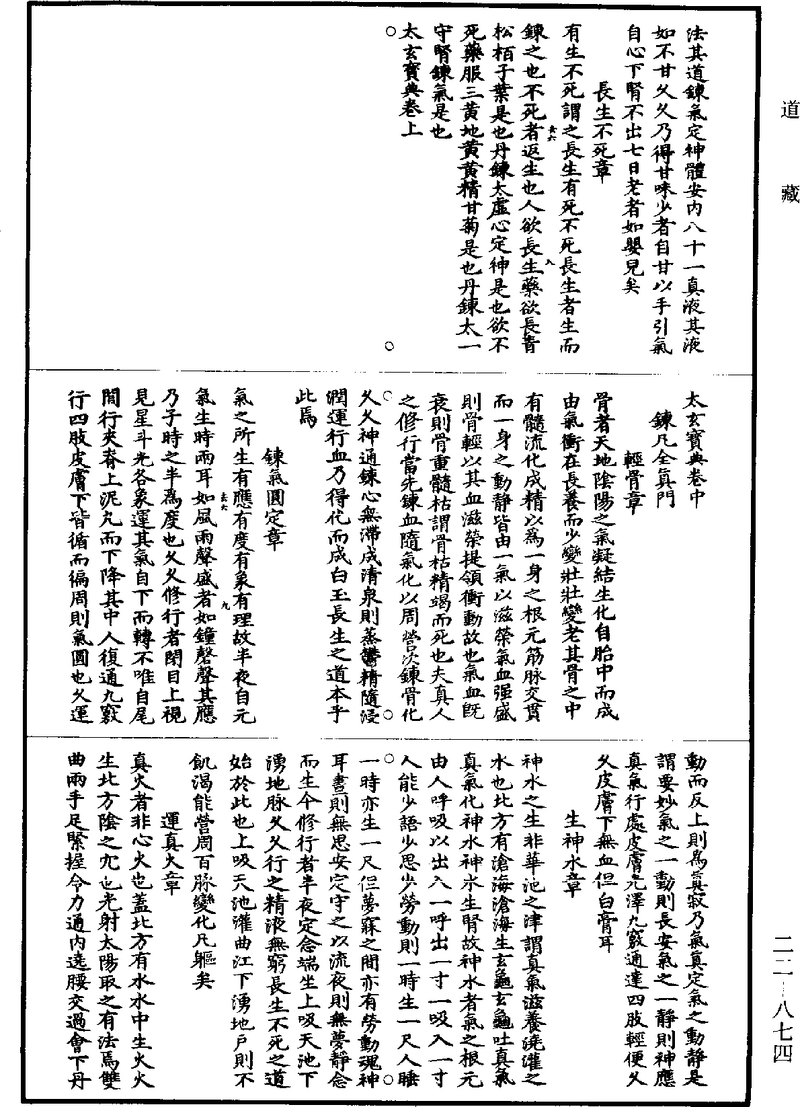 道藏
法其道鍊氣定神體安內八十一真液其液
如不甘久久乃得甘味少者自甘以手引氣
自心下腎不出七日老者如嬰兒矣
長生不死章
有生不死謂之長生有死不死長生者生而
鍊之也不死者返生也人欲長生藥欲長青
松栢子葉是也丹鍊太虛心定神是也欲不
死藥服三黃地黃黃精甘菊是也丹鍊太一
守腎鍊氣是也
太玄寶典卷上
太玄寶典卷中
鍊凡全真門
輕骨章
骨者天地陰陽之氣凝結生化自胎中而成
由氣衝在長養而少變壯壯變老其骨之中
有髓流化成精以為一身之根元筋脉交貫
而一身之動靜皆由一氣以滋榮氣血强盛
則骨輕以其血滋榮提領衝動故也氣血既
衰則骨重髓枯謂骨枯精竭而死也夫真人
之修行當先鍊血隨氣化以周營次鍊骨化
久久神通鍊心無滯成清泉則蒸鬱精隨浸
潤運行血乃得代而成白玉長生之道本乎
此焉
鍊氣圓定章
氣之所生有應有度有象有理故半夜自元
氣生時兩耳如風雨聲盛者如鐘磬聲其應
乃子時之半為度也久久修行者閉目上視
見星斗光各象運其氣自下而轉不唯自尾
閭行夾脊上泥丸而下降其中人復通九竅
行四肢皮膚下皆循而徧周則氣圓也久運
動而反上則為真寂乃氣真定氣之動靜是
謂要妙氣之一動則長安氣之一靜則神應
真氣行處皮膚光澤九竅通達四肢輕便久
久皮膚下無血但白膏耳
生神水章
神水之生非華池之津謂真氣滋養澆灌之
水也北方有滄海滄海生玄龜玄龜吐真氣
真氣化神水神水生腎故神水者氣之根元
由人呼吸以出入一呼出一寸一吸入一寸
人能少語少思少勞動則一時生一尺人睡
一時亦生一尺但夢寐之間亦有勞動魂神
耳晝則無思安定守之以流夜則無夢靜念
而生今修行者半夜定念端坐上吸天池下
湧地脉久久行之精液無窮長生不死之道
始於此也上吸天池灌曲江下湧地戶則不
飢渴能營周百脉變化凡軀矣
運真火章
真火者非心火也蓋北方有水水中生火火
生北方陰之穴也光射太陽取之有法焉雙
曲兩手足緊握令力通內遶腰交過會下丹
二二-八七四